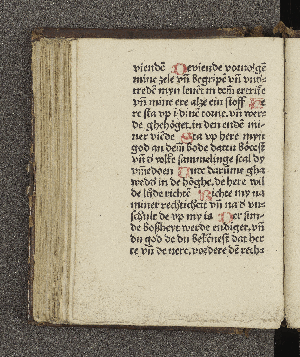 viendē De viende voruolgē
mine zele vñ begripē vñ vor-
tredē myn leuēt in dem ertrike
vñ mine ere alze ein stoff He
re sta vp i dinē torne vñ wer-
de ghehoget in den endē mi-
ner viēde Sta vp here myn
god an dem bode dattu bōtest
vñ d volke sammelinge scal dy
vmedoen Unde darūme gha
wedd in de hoghe de here wil
de lude richtē Richte my na
miner rechticheit vñ na d vn-
schult de vp my is Der sun-
de bosheyt werde endiget vñ
du god de du bekēnest dat her
te vñ de nere vordere dē rech-